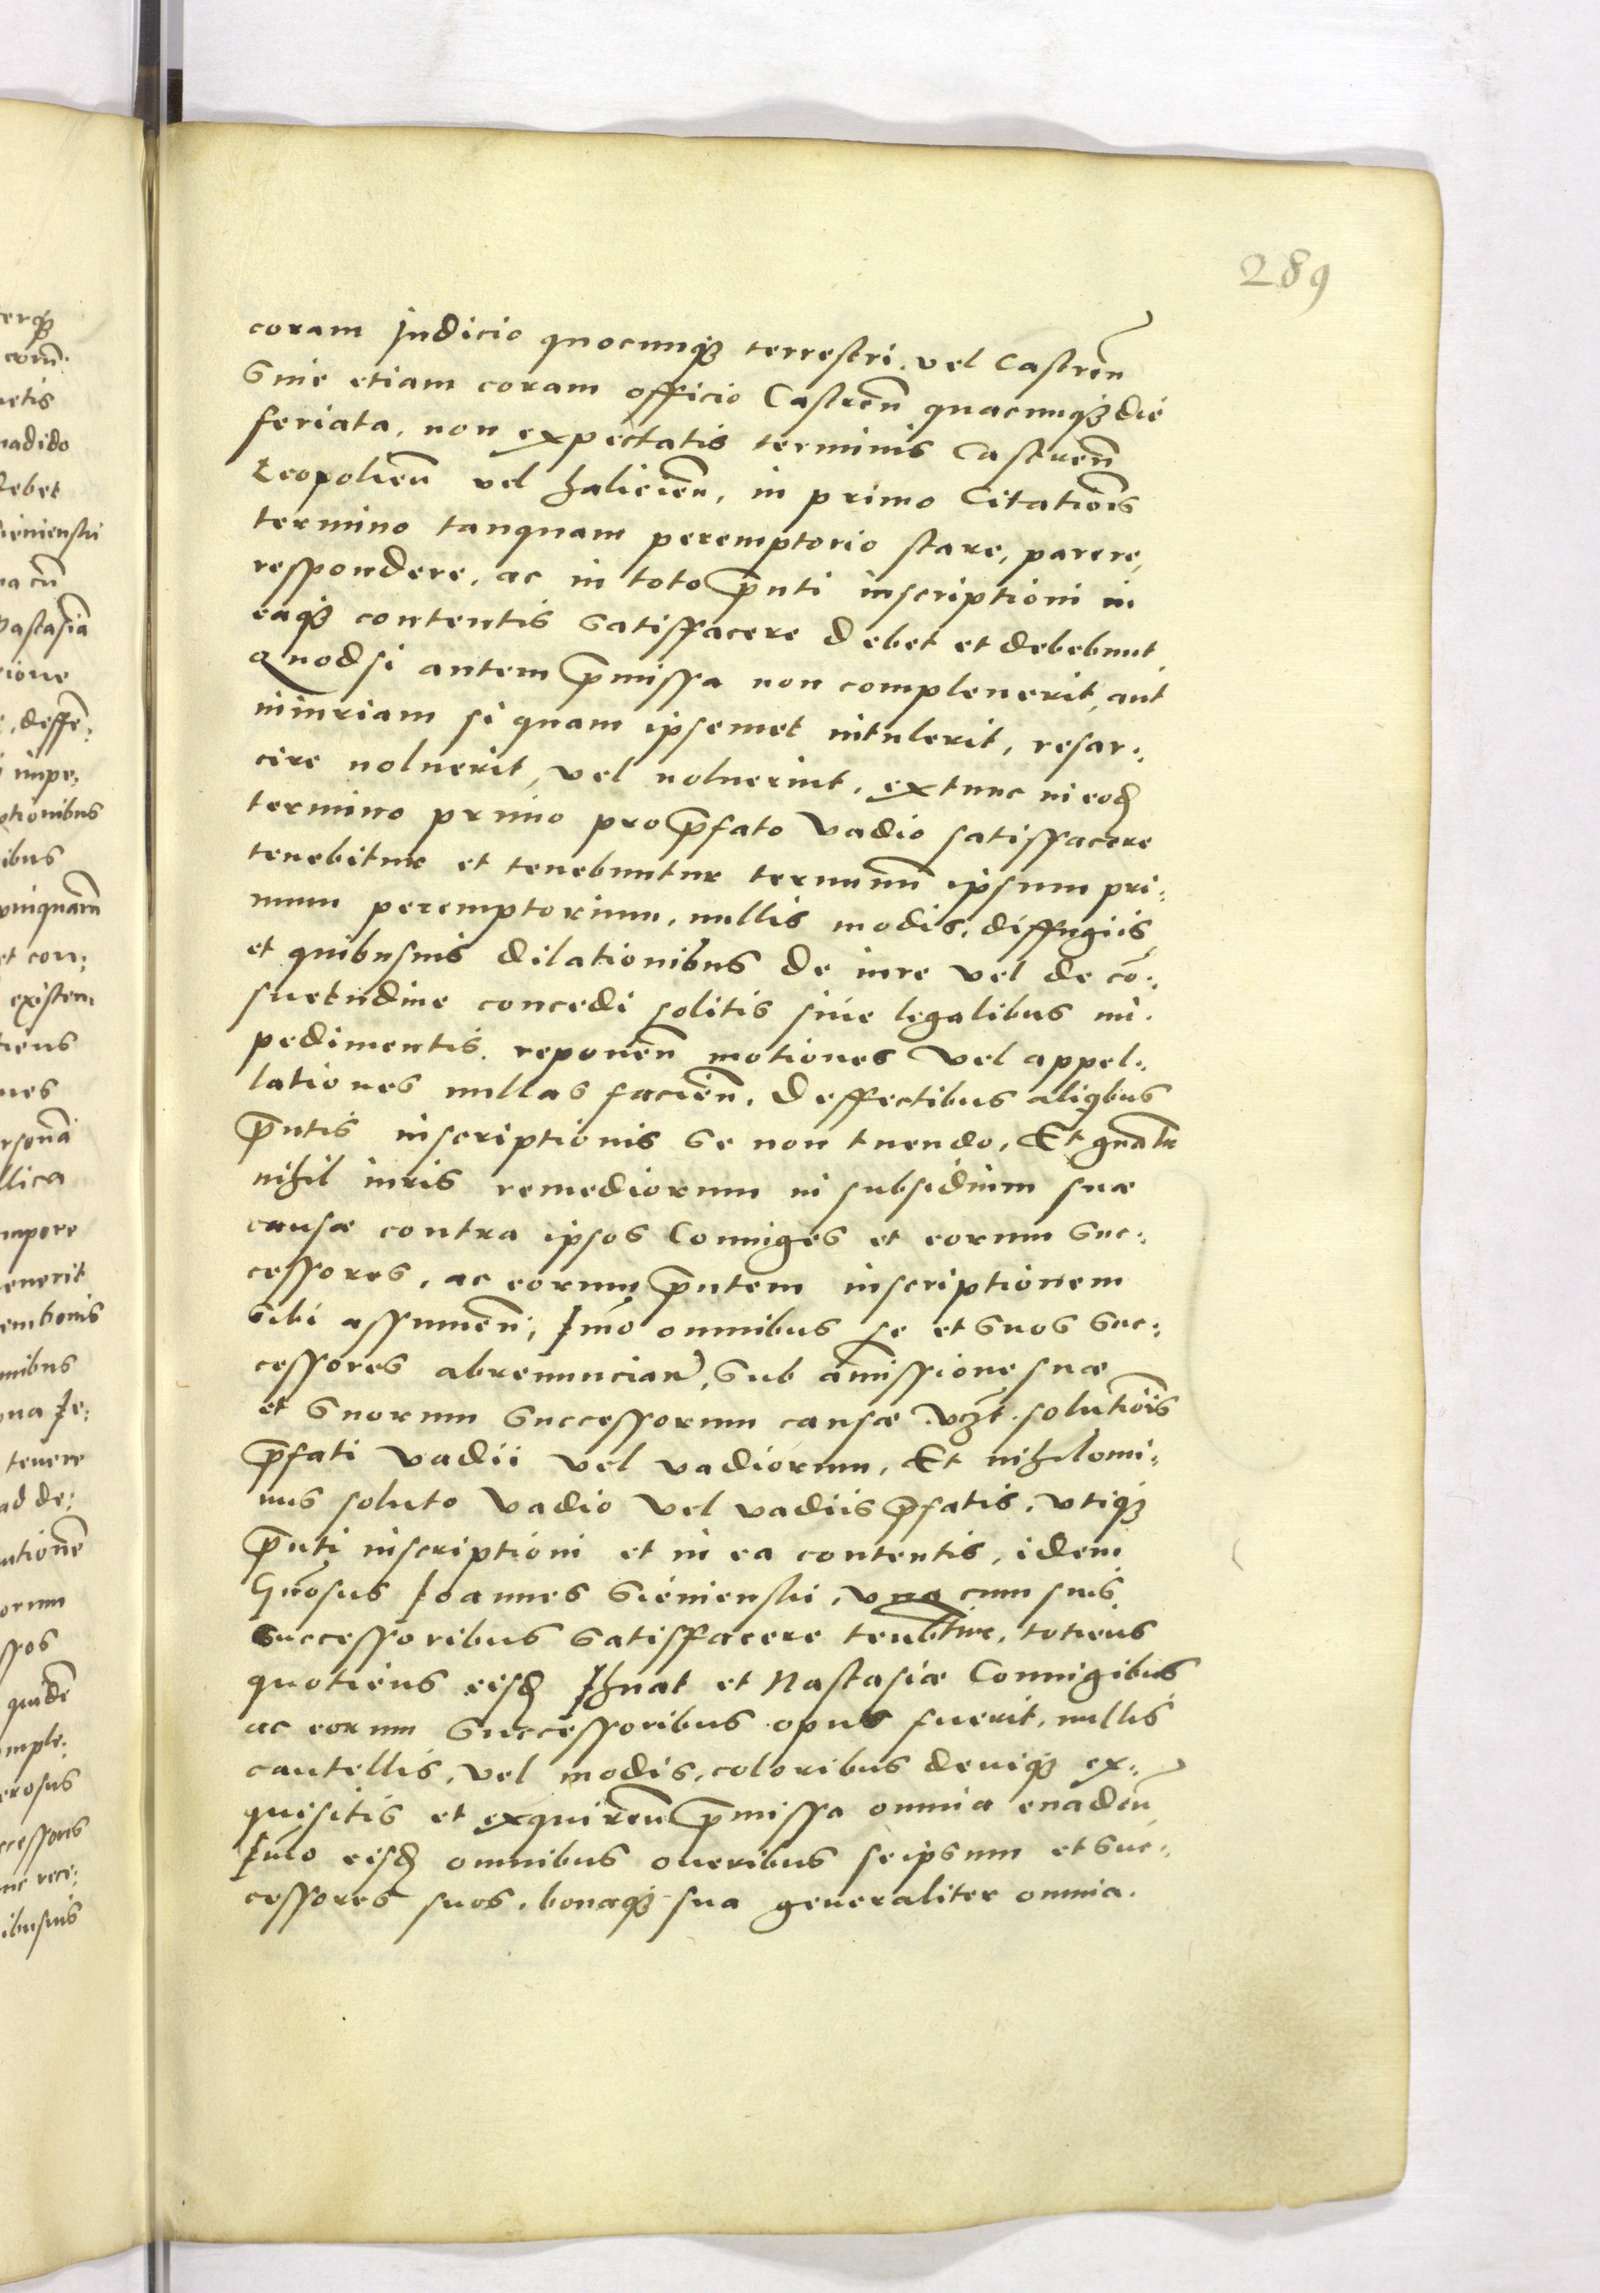 289
coram Judicio quocunq₃ terrestri, vel Castren̄
Siue etiam coram officio Castren̄ quacunq₃ die
feriata, non expectatis terminis Castren̄
Leopolien̄ vel halicien̄, in primo Citatiōis
termino tanquam peremptorio stare, parere,
respondere, ac in toto p̄nti inscriptioni in
eaq₃ contentis satisfacere debet et debebunt,
Quodsi autem p̄missa non compleuerit, aut
iniuriam si quam ipsemet intulerit, resar:
cire noluerit, vel noluerint, extunc in eod
termino primo pro p̄fato vadio satisfacere
tenebitur et tenebuntur terminū ipsum pri:
mum peremptorium, nullis modis, diffugiis
et quibusuis dilationibus de iure vel de cō:
suetudine concedi solitis siue legalibus im:
pedimentis, reponen̄ motiones vel appel:
lationes nullas facien̄, deffectibus aliqbus
p̄ntis inscriptionis se non tuendo, Et gnālr
nihil iuris remediorum in subsidium suæ
causæ contra ipsos Coniuges et eorum suc:
cessores, ac eorum p̄ntem inscriptionem
sibi assumen̄, Imo omnibus se et suos suc:
cessores abrenuncian̄, sub amissione suæ
et suorum successorum causæ vz̄t solutiōis
p̄fati vadii vel vadiorum, Et nihilomi:
nus soluto vadio vel vadiis p̄fatis, vtiq₃
p̄nti inscriptioni et in ea contentis, idem
Gn̄osus Joannes Sienienski, vna cum suis
successoribus satisfacere tenebitur, totiens
quotiens eisd Ihnat et Nastasiæ Coniugibus
ac eorum successoribus opus fuerit, nullis
cautellis, vel modis, coloribus deniq₃ ex:
quisitis et exquiren̄ p̄missa omnia euaden̄,
Imo eisd omnibus oneribus seipsum et suc:
cessores suos, bonaq₃ sua generaliter omnia.